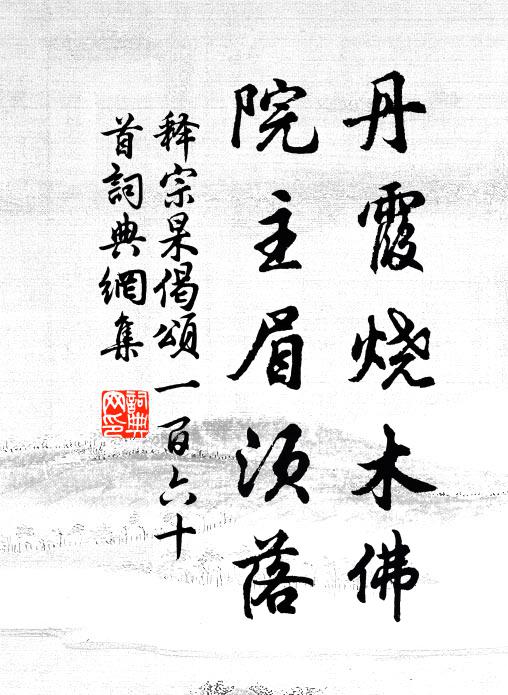 丹霞烧木佛
院主眉须落
释宗杲偈頌一百六十
首詞典網集
詞典
网印